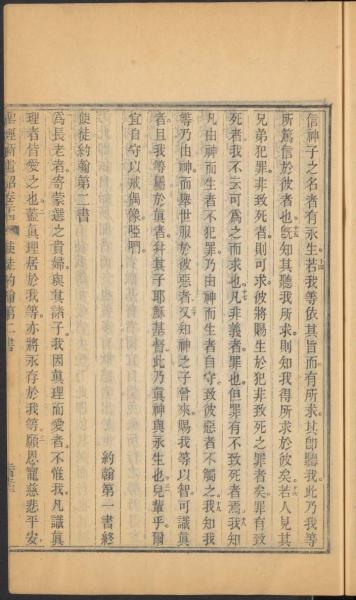 信神子之名者有永生若我等依其旨而有所求其卽聽我此乃我等
所篤信於彼者也旣知其聽我所求則知我得所求於彼矣若人見其
兄弟犯罪非致死者則可求彼將賜生於犯非致死之罪者矣罪有致
死者我不云可爲之而求也凡非義者罪也但罪有不致死者焉我知
凡由神而生者不犯罪乃由神而生者自守致彼惡者不觸之我知我
等乃由神而舉世服於彼惡者又知神之子曾來賜我等以智可識眞
者且我等屬於眞者幷其子耶穌基督此乃眞神與永生也兒輩乎爾
宜自守以戒偶像啞們
約翰第一書終
使徒約翰第二書
爲長老者寄蒙選之貴婦與其諸子我因眞理而愛者不惟我凡識眞
理者皆愛之也蓋眞理居於我等亦將永存於我等願恩寵慈悲平安
使徒約翰第二書